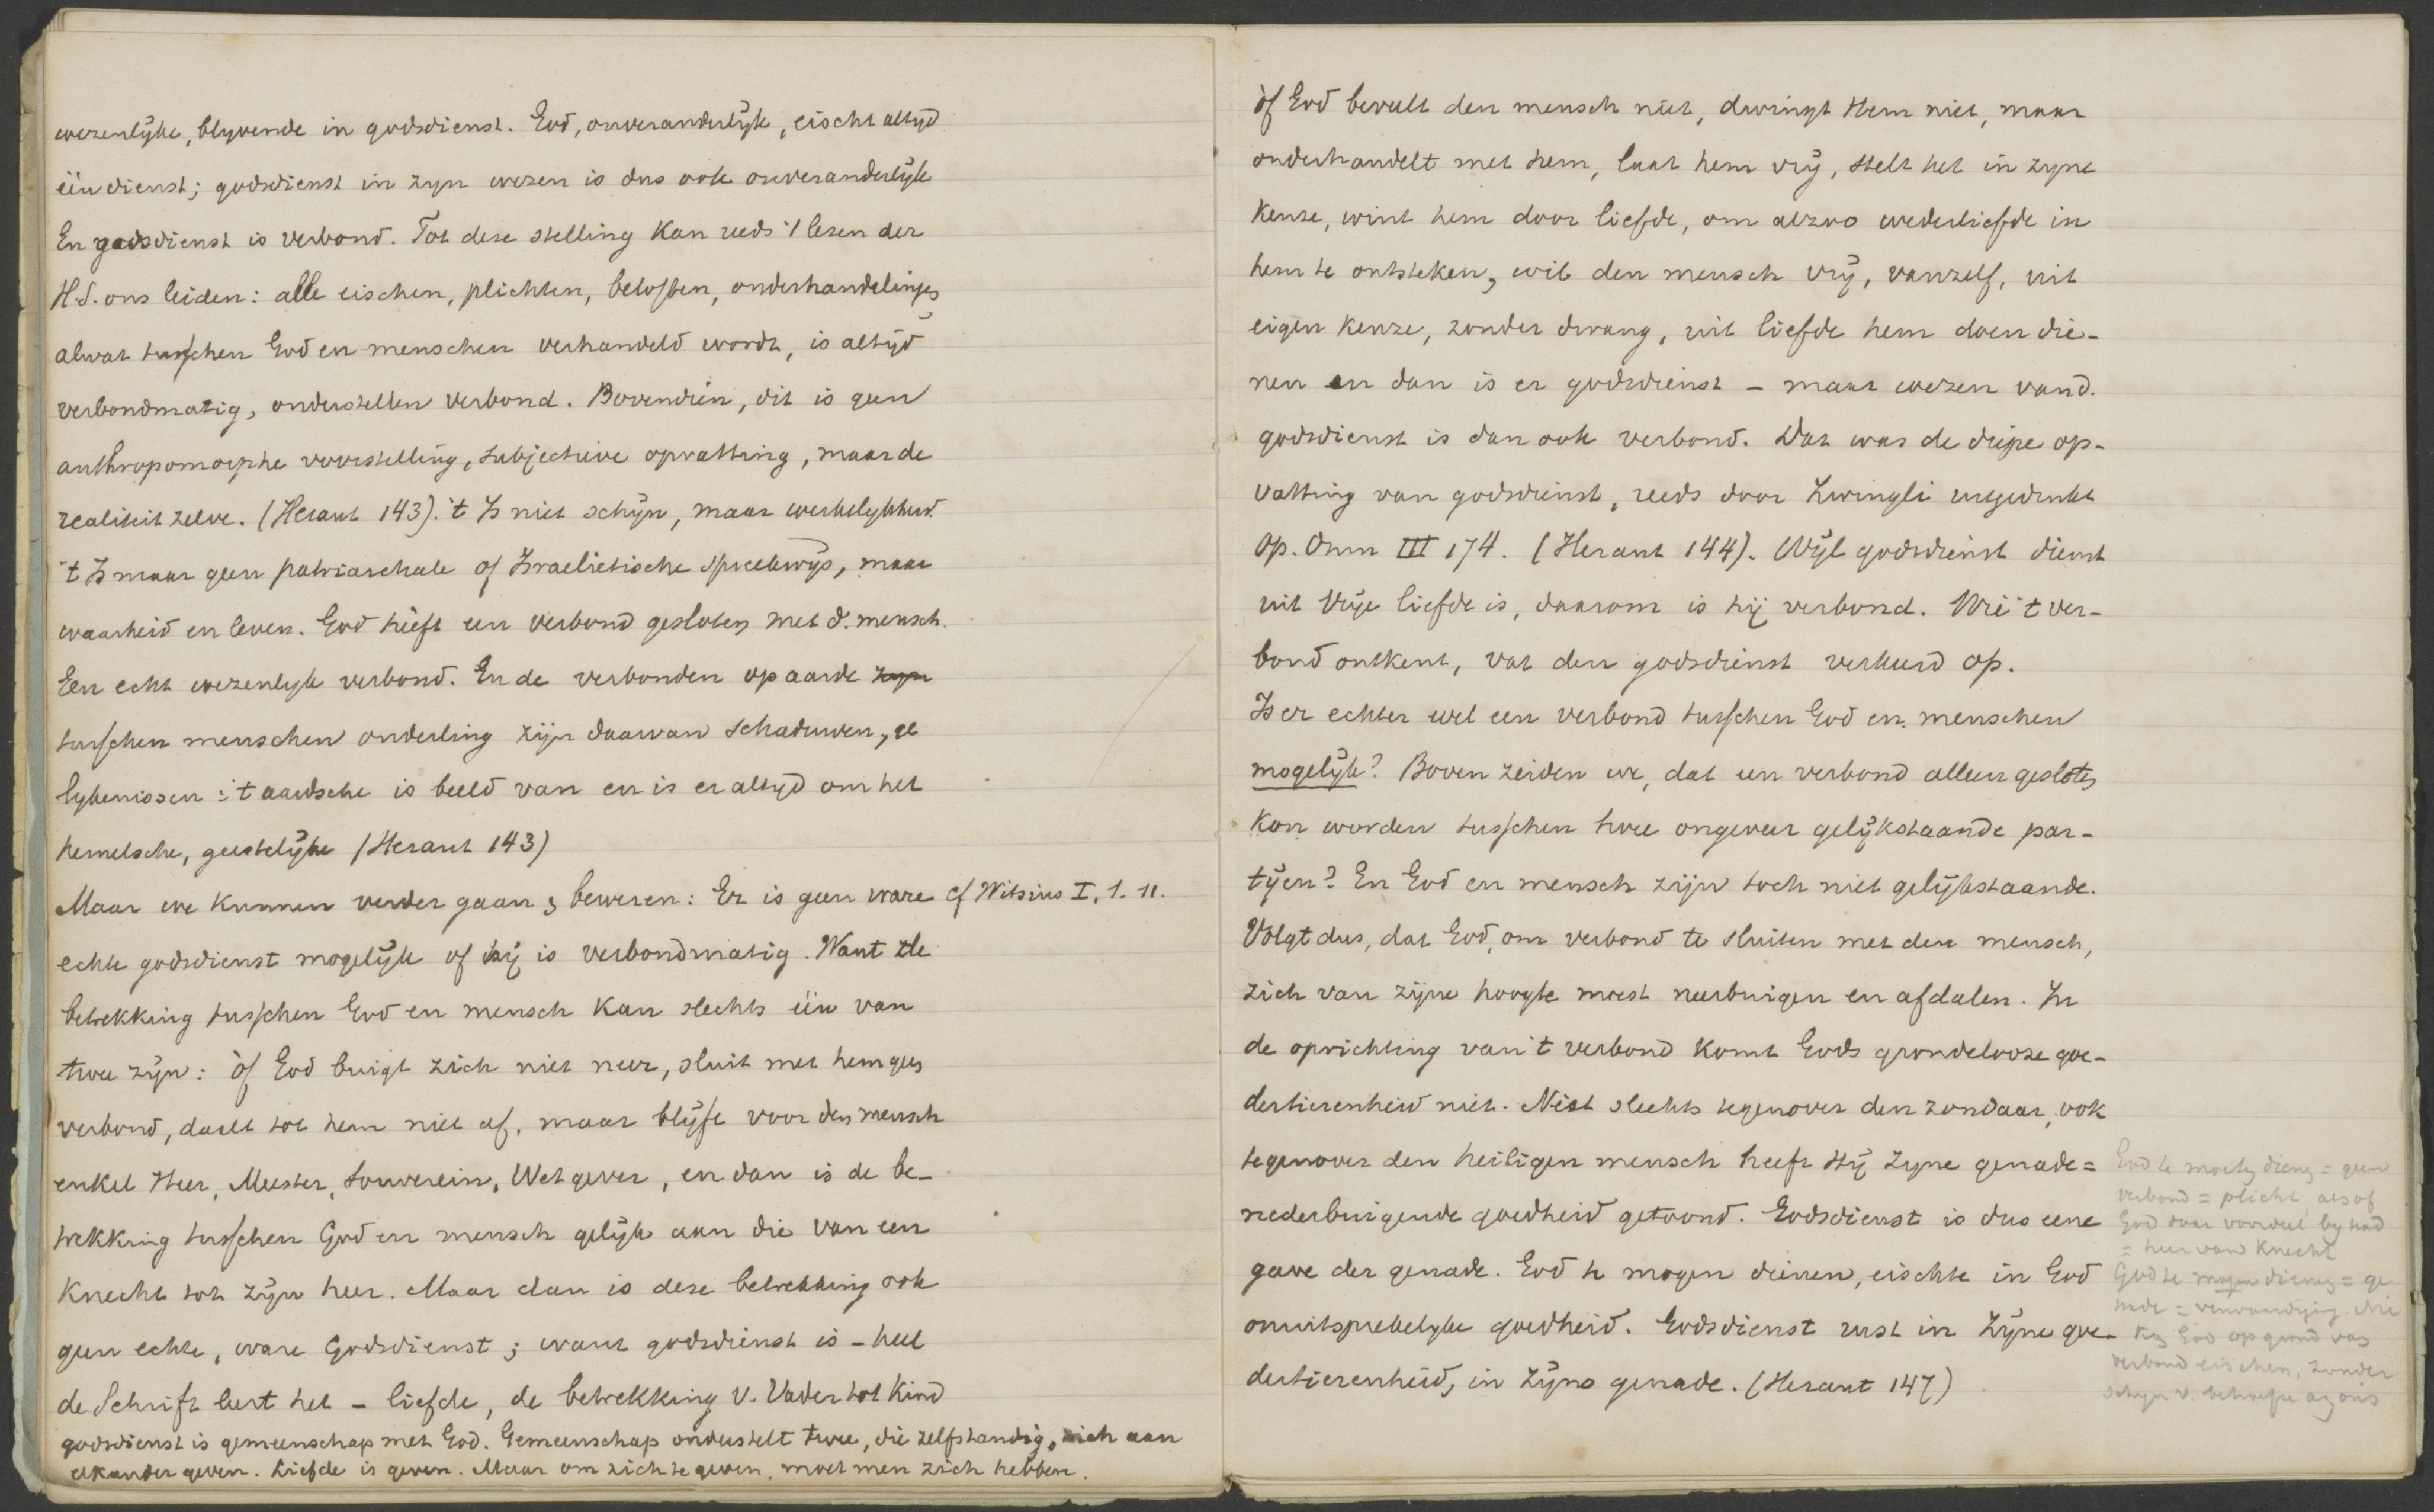 wezenlijke, blyvende in godsdienst. God, onveranderlijk, eischt altyd
één dienst; godsdienst in zyn wezen is dus ook onveranderlijk
En godsdienst is verbond. Tot deze stelling kan reeds 't lezen der
H.S. ons leiden: alle eischen, plichten, beloften, onderhandelingen,
alwat tusschen God en menschen verhandeld wordt, is altijd
verbondmatig, onderstellen verbond. Bovendien, dit is geen
anthropomorphe voorstelling, subjectieve opvatting, maar de
realiteit zelve. (Heraut 143). 't Is niet schijn, maar werkelykheid.
't Is maar geen patriarchale of Israelietische spreekwijs, maar
waarheid en leven. God heeft een verbond gesloten met d. mensch.
Een echt wezenlyk verbond. En de verbonden op aarde zyn
tusschen menschen onderling zijn daarvan schaduwen, ge
lykenissen: 't aardsche is beeld van en is er altyd om het
hemelsche, geestelijke (Heraut 143)
Maar we kunnen verder gaan & beweren: Er is geen ware cf Witsius I, 1. 11.
echte godsdienst mogelijk of hij is verbondmatig. Want de
betrekking tusschen God en mensch kan slechts één van
twee zijn: òf God buigt zich niet neer, sluit met hem geen
verbond, daalt tot hem niet af, maar blijft voor den mensch
enkel Heer, Meester, Souverein, Wetgever, en dan is de be-
trekking tusschen God en mensch gelijk aan die van een
Knecht tot zijn heer. Maar dan is deze betrekking ook
geen echte, ware Godsdienst; want godsdienst is - heel
de Schrift leert het - liefde, de betrekking v. Vader tot Kind
godsdienst is gemeenschap met God. Gemeenschap onderstelt twee, die zelfstandig, zich aan
elkander geven. Liefde is geven. Maar om zich te geven, moet men zich hebben.
òf God beveelt den mensch niet, dwingt Hem niet, maar
onderhandelt met hem, laat hem vrij, stelt het in zyne
keuze, wint hem door liefde, om alzoo wederliefde in
hem te ontsteken, wil den mensch vrij, vanzelf, uit
eigen keuze, zonder dwang, uit liefde hem doen die-
nen en dan is er godsdienst - maar wezen van d.
godsdienst is dan ook verbond. Dat was de diepe op-
vatting van godsdienst, reeds door Zwingli uitgedrukt
Op. Omn III 174. (Heraut 144). Wijl godsdienst dienst
uit vrije liefde is, daarom is hij verbond. Wie 't ver-
bond ontkent, vat den godsdienst verkeerd op.
Is er echter wel een verbond tusschen God en menschen
mogelijk? Boven zeiden we, dat een verbond alleen gesloten
kon worden tusschen twee ongeveer gelijkstaande par-
tijen? En God en mensch zijn toch niet gelijkstaande.
Volgt dus, dat God, om verbond te sluiten met den mensch,
zich van zijne hoogte moest neerbuigen en afdalen. In
de oprichting van 't verbond komt Gods grondelooze goe-
dertierenheid uit. Niet slechts tegenover den zondaar, ook
tegenover den heiligen mensch heeft Hij zyne genade=
nederbuigende goedheid getoond. Godsdienst is dus eene
gave der genade. God te mogen dienen, eischte in God
onuitsprekelyke goedheid. Godsdienst rust in Zijne goe-
dertierenheid, in zijne genade. (Heraut 147)
God te moeten dienen = geen
verbond = plicht, alsof
God daar voordeel by had
= heer van Knecht
God te mogen dienen = ge
nade = verwaardiging. Nu
kan God op grond van
verbond eischen, zonder
schijn v. behoefte aan ons